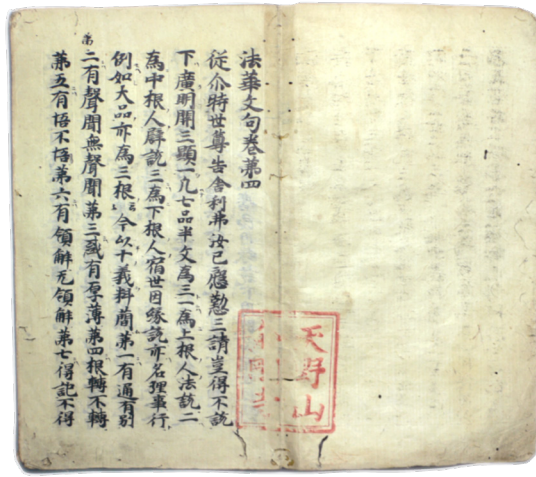 法華文句卷第四
從尒時世尊告舍利弗汝已慇懃三請豈得不說
下廣明開三顯一凡七品半文為三一為上根人法說二
為中根人譬說三為下根人宿世因緣說亦名理事行
例如大品亦為三根云云今以十義料蕳第一有通有別
第二有聲聞無聲聞第三惑有厚薄第四根轉不轉
第五有悟不悟第六有領解无領解第七得記不得
天野山